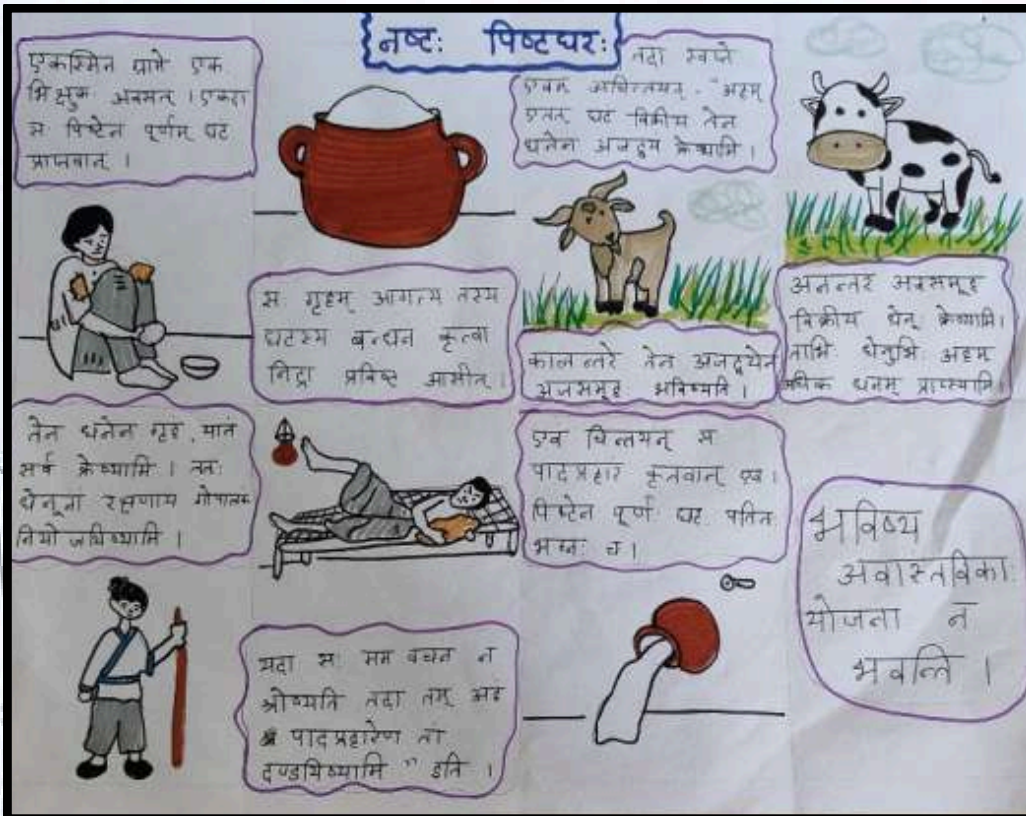 नष्टः पिष्टघटः
एकस्मिन ग्रामे एक
भिक्षुकः अवसत् । एकदा
स पिष्टेन पूर्णम् घट
प्राप्तवान् ।
स गृहम् आगत्य तस्य
घटस्य बन्धन कृत्वा
निद्रा प्रविष्ट आसीत् ।
तदा स्वप्ने
एवम अचिन्तयत् - "अहम्
एतत् घट विक्रीय तेन
धनेन अजद्वय क्रेष्यामि ।
कालन्तरे तेन अजद्वयेन
अजसमूह भविष्यति ।
अनन्तर अजसमूह
विक्रीय धेनू क्रेष्यामि ।
ताभि धेनुभि अहम्
अधिक धनम् प्राप्स्यामि ।
तेन धनेन गृह, यान
सर्व क्रेष्यामि । ततः
धेनूना रक्षणाय गोपालक
नियोजयिष्यामि ।
यदा सः मम वचन न
श्रोष्यति तदा तम् अह
पादप्रहारेण तां
दण्डयिष्यामि " इति ।
एव चिन्तयन् स
पादप्रहार कृतवान् एव ।
पिष्टेन पूर्ण घट पतित
भग्न च ।
भविष्य
अवास्तविकाः
योजना न
भवन्ति ।